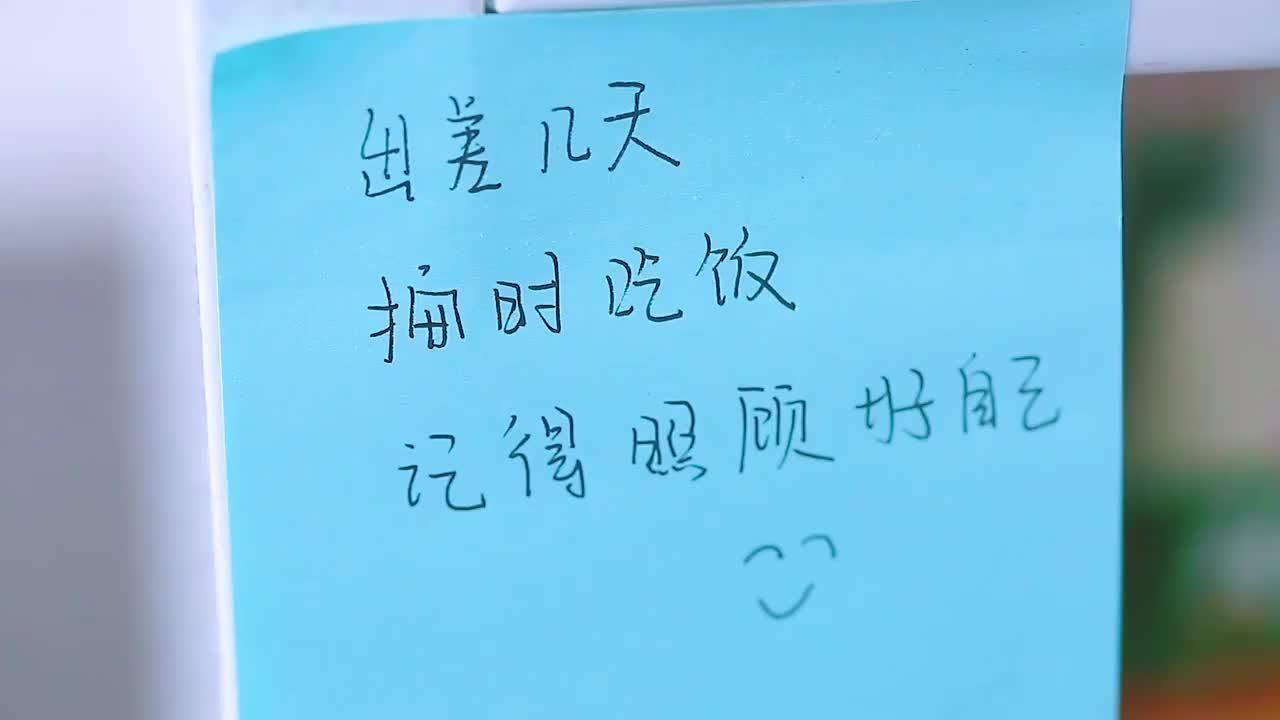 出差几天
按时吃饭
记得照顾好自己